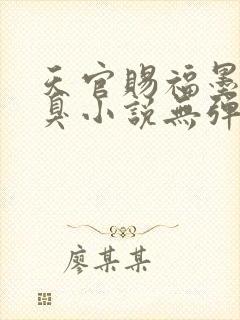 天官賜福墨
臭小說無彈
廖某某